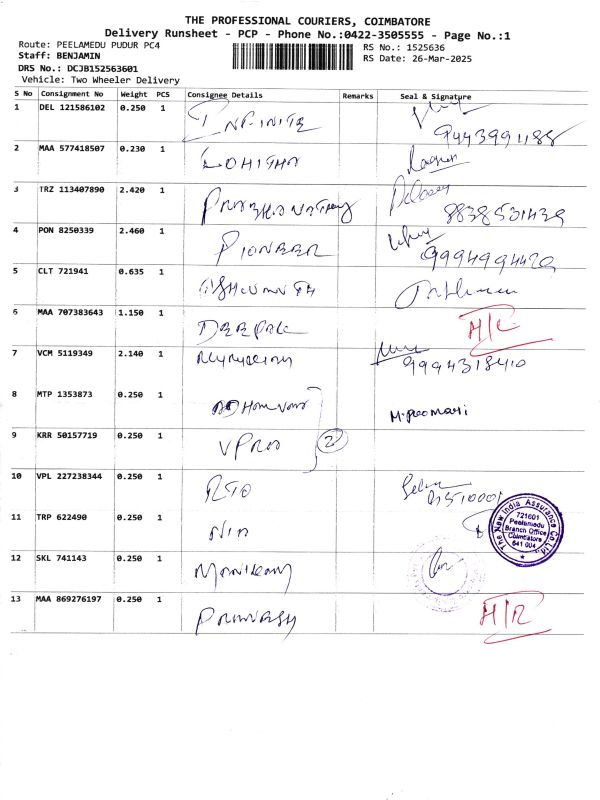 THE PROFESSIONAL COURIERS, COIMBATORE
Delivery Runsheet - PCP - Phone No.:0422-3505555 - Page No.:1
Route: PEELAMEDU PUDUR PC4 RS No.: 1525636
Staff: BENJAMIN RS Date: 26-Mar-2025
DRS No.: DCJB152563601
Vehicle: Two Wheeler Delivery
S No Consignment No Weight PCS Consignee Details Remarks Seal & Signature
1 DEL 121586102 0.250 1 INFINITE
9443991188
2 MAA 577418507 0.230 1 LOHITHA
3 TRZ 113407890 2.420 1
8838501439
4 PON 8250339 2.460 1 PIONEER
9994994420
5 CLT 721941 0.635 1
6 MAA 707383643 1.150 1 DEEPAK
7 VCM 5119349 2.140 1
9994318410
8 MTP 1353873 0.250 1
9 KRR 50157719 0.250 1 VPRO 2
10 VPL 227238344 0.250 1 RTO
11 TRP 622490 0.250 1 NIA
The New India Assurance Co. Ltd.
721601
Peelamedu
Branch Office
Coimbatore
641 004
12 SKL 741143 0.250 1
13 MAA 869276197 0.250 1 H/R